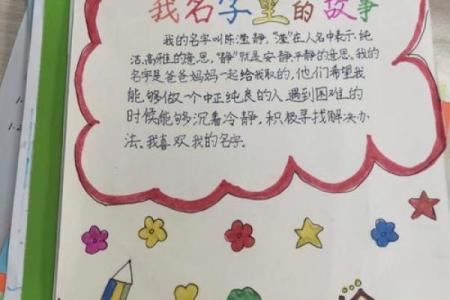 我名字里的故事
我的名字叫陈滢静，"滢"在人名中表示纯
洁、高雅的意思，"静"就是安静、平静的意思。我的
名字是爸爸妈妈一起给我取的，他们希望我
能够做一个中正纯良的人，遇到困难的
时候能够沉着冷静，积极寻找解决办
法。我喜欢我的名字。